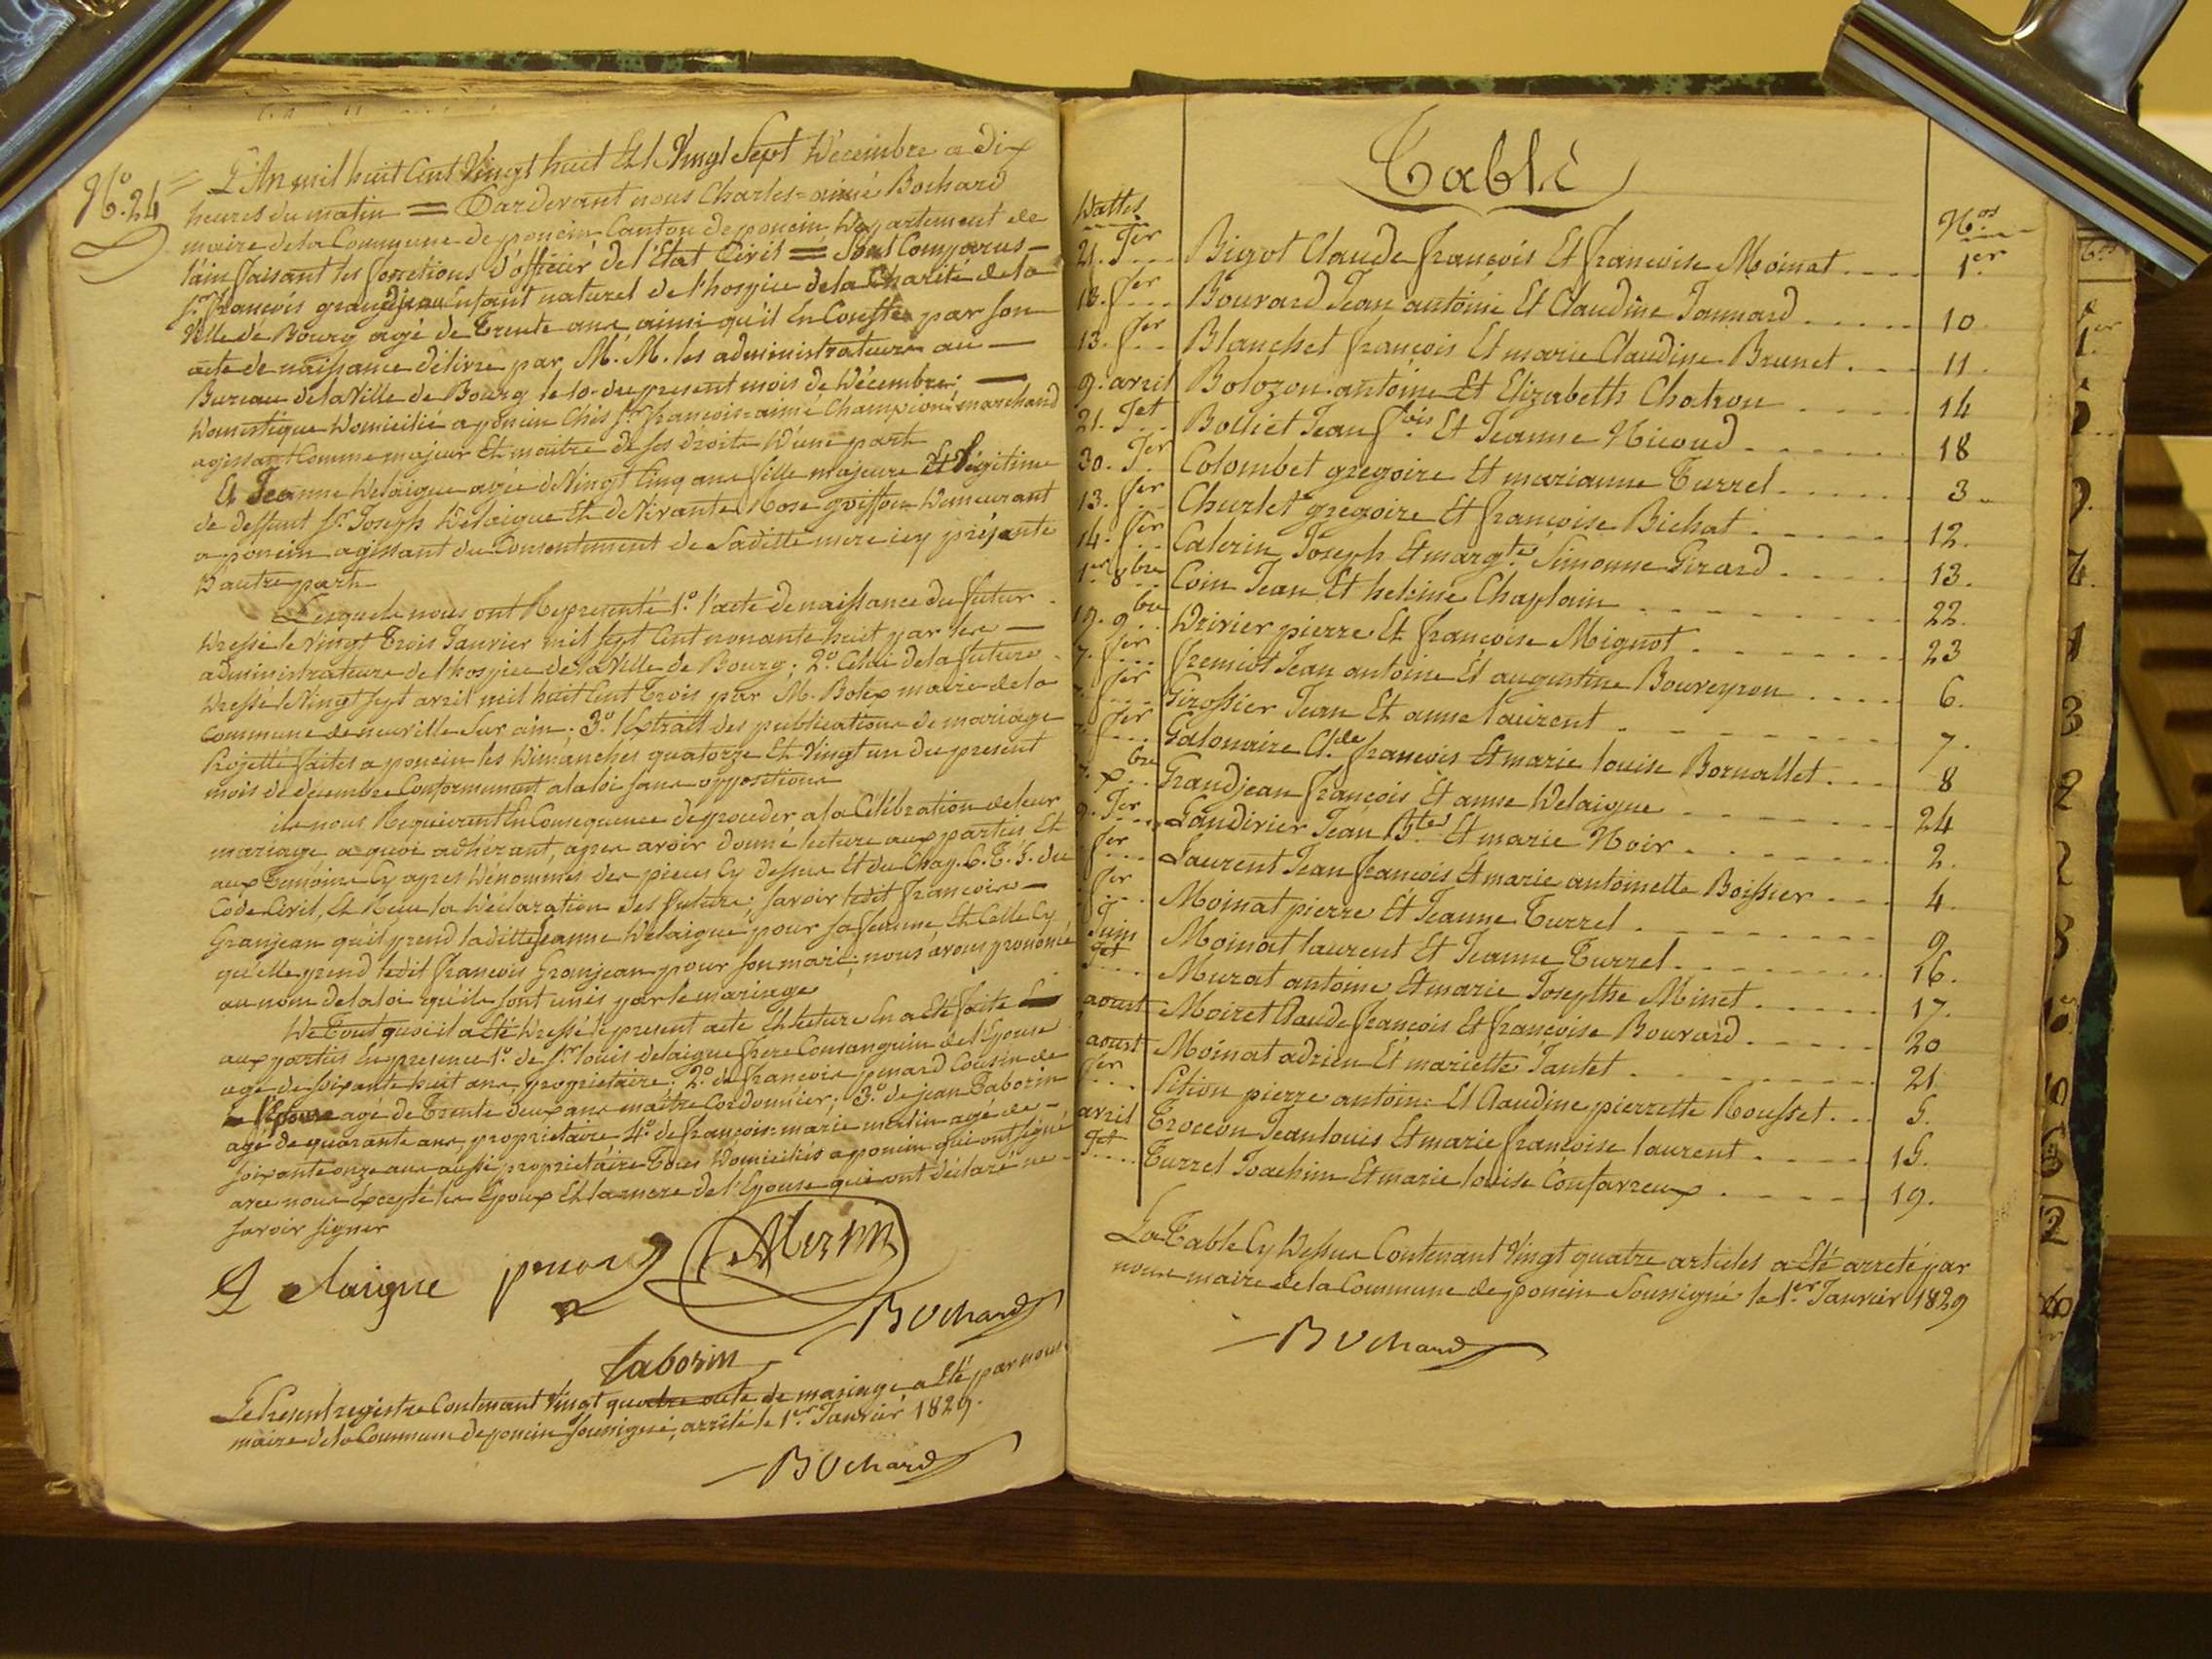 N.o 24
L'An mil huit Cent Vingt huit Et le Vingt Sept Décembre a dix
heures du matin = Pardevant nous Charles=aimé Bochard
maire de la Commune de poncin Canton de poncin Département de
l'ain faisant les fonctions d'officier de l'Etat Civil = Sont Comparus —
Sr. françois grandjean Enfant naturel de l'hospice de la Charité de la
Ville de Bourg agé de Trente ans, ainsi qu'il En Conste par son
acte de naissance délivré par M. M. les administrateurs au —
Bureau de la Ville de Bourg le 10. du present mois de Décembre; —
Domestique Domicilié a poncin Chés Sr. françois=aimé Champion marchand
agissant Comme majeur Et maitre de ses droits D'une part
Et Jeanne Delaigue agée de Vingt Cinq ans fille majeure Et Légitime
de deffunt Sr. Joseph Delaigue Et de Vivante Rose goiffon Demeurant
a poncin agissant du Consentement de Saditte mere icy présente
D'autre part
Lesquels nous ont Representé 1.o l'acte de naissance du futur
Dressé le Vingt Trois Janvier mil sept Cent nonante huit par les —
administrateurs de l'hospice de la Ville de Bourg; 2.o Celui de la future
Dressé le Vingt Sept avril mil huit Cent Trois par M. Bolex maire de la
Commune de neuville Sur ain; 3.o l'Extrait des publications de mariage
Projetté faites a poncin les Dimanches quatorze Et Vingt un du present
mois de décembre Conformement a la loi sans oppositions
ils nous Requierent En Consequence de proceder a la Célébration de leur
mariage a quoi adhérant, apres avoir donné lecture aux parties Et
aux Temoins Cy apres Dénommés des pieces Cy dessus Et du Chap. 6. T. 5. du
Code Civil, Et Recu la Déclaration des futurs; savoir ledit françois —
Granjean qu'il prend laditte Jeanne Delaigue pour sa femme Et Celle Cy
qu'elle prend ledit françois Granjean pour son mari; nous avons prononcé
au nom de la loi qu'ils sont unis par le mariage
De Tout quoi il a Eté Dressé le present acte Et lecture En a Eté faite
aux parties En presence 1.o de Sr. louis delaigue frere Consanguin de l'Epouse
agé de soixante huit ans, propriétaire; 2.o de françois penard Cousin de
l'Epouse agé de Trente deux ans maitre Cordonnier; 3.o de jean Taborin
agé de quarante ans, propriétaire 4.o de françois=marie merlin agé de —
soixante onze ans aussi propriétaire Tous Domiciliés a poncin qui ont signé
avec nous Excepté les Epoux Et la mere de l'Epouse qui ont déclaré ne
savoir signer
Bochard
taborin
Le Present registre Contenant Vingt quatre acte de mariage a Eté par nous
maire de la Commune de poncin soussigné, arrêté le 1.er Janvier 1829.
Bochard
Table
Dattes
N.os
21. Jer Bigot Claude françois Et francoise Moinat 1er
13. fer Bouvard Jean antoine Et Claudine Jannard 10
13. fer Blanchet françois Et marie Claudine Brunet 11
9. avril Bolozon antoine Et Elizabeth Chatron 14
21. Jet Bolliet Jean fois Et Jeanne Nicoud 18
30. Jer Colombet gregoire Et marianne Turrel 3
13. fer Churlet gregoire Et françoise Bichat 12.
14. fer Calerin Joseph Et margte. Simonne Girard 13.
1er 8bre Coin Jean Et heléine Chaplain 22.
19. 9bre Drivier pierre Et francoise Mignot 23
7. fer fremiot Jean antoine Et augustine Bouveyron 6.
fer Girossier Jean Et anne laurent 7.
fer Galonnaire Cl.de françois Et marie louise Bornallet 8
xbre Grandjean françois Et anne Delaigue 24
9. Jer Landirier Jean Bte. Et marie Noir 2.
fer Laurent Jean françois Et marie antoinette Boissier 4
fer Moinat pierre Et Jeanne Turrel 9
Juin Moinat laurent Et Jeanne Turrel 16.
Jet Murat antoine Et marie Josepthe Minet 17.
aoust Moiret Claude françois Et françoise Bouvard 20
aoust Moinat adrien Et mariette Tantet 21
fer Pition pierre antoine Et Claudine pierrette Rousset 5.
avril Troccon Jean louis Et marie françoise laurent 15.
Jet Turrel Joachim Et marie louise Confavreux 19.
La Table Cy Dessus Contenant Vingt quatre articles a Eté arrêté par
nous maire de la Commune de poncin Soussigné le 1.er Janvier 1829
Bochard